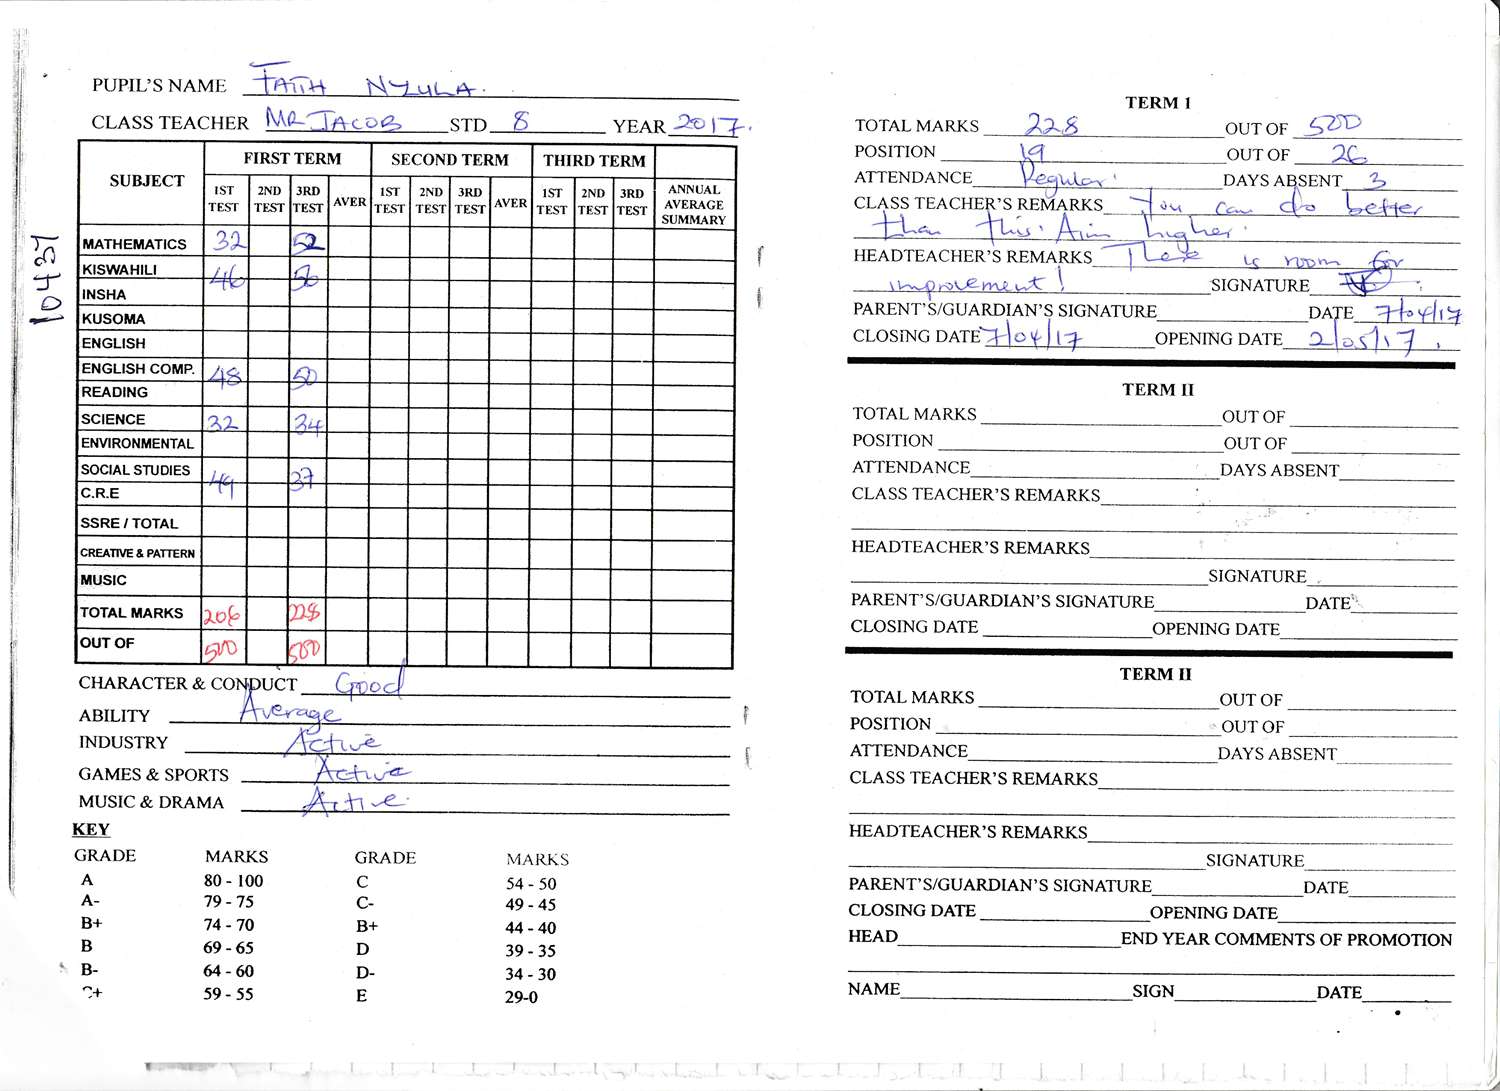 10437
PUPIL'S NAME FAITH NZULA.
CLASS TEACHER MR JACOB STD 8 YEAR 2017.
SUBJECT FIRST TERM SECOND TERM THIRD TERM
1ST TEST 2ND TEST 3RD TEST AVER 1ST TEST 2ND TEST 3RD TEST AVER 1ST TEST 2ND TEST 3RD TEST ANNUAL AVERAGE SUMMARY
MATHEMATICS 32 52
KISWAHILI 46 56
INSHA
KUSOMA
ENGLISH
ENGLISH COMP. 48 50
READING
SCIENCE 32 34
ENVIRONMENTAL
SOCIAL STUDIES 49 37
C.R.E
SSRE / TOTAL
CREATIVE & PATTERN
MUSIC
TOTAL MARKS 206 228
OUT OF 500 500
CHARACTER & CONDUCT Good
ABILITY Average
INDUSTRY Active
GAMES & SPORTS Active
MUSIC & DRAMA Active.
KEY
GRADE MARKS GRADE MARKS
A 80 - 100 C 54 - 50
A- 79 - 75 C- 49 - 45
B+ 74 - 70 B+ 44 - 40
B 69 - 65 D 39 - 35
B- 64 - 60 D- 34 - 30
C+ 59 - 55 E 29-0
TERM 1
TOTAL MARKS 228 OUT OF 500
POSITION 19 OUT OF 26
ATTENDANCE Regular. DAYS ABSENT 3
CLASS TEACHER'S REMARKS You can do better
than this. Aim higher.
HEADTEACHER'S REMARKS There is room for
improvement! SIGNATURE
PARENT'S/GUARDIAN'S SIGNATURE DATE 7/04/17
CLOSING DATE 7/04/17 OPENING DATE 2/05/17.
TERM II
TOTAL MARKS OUT OF
POSITION OUT OF
ATTENDANCE DAYS ABSENT
CLASS TEACHER'S REMARKS
HEADTEACHER'S REMARKS
SIGNATURE
PARENT'S/GUARDIAN'S SIGNATURE DATE
CLOSING DATE OPENING DATE
TERM II
TOTAL MARKS OUT OF
POSITION OUT OF
ATTENDANCE DAYS ABSENT
CLASS TEACHER'S REMARKS
HEADTEACHER'S REMARKS
SIGNATURE
PARENT'S/GUARDIAN'S SIGNATURE DATE
CLOSING DATE OPENING DATE
HEAD END YEAR COMMENTS OF PROMOTION
NAME SIGN DATE